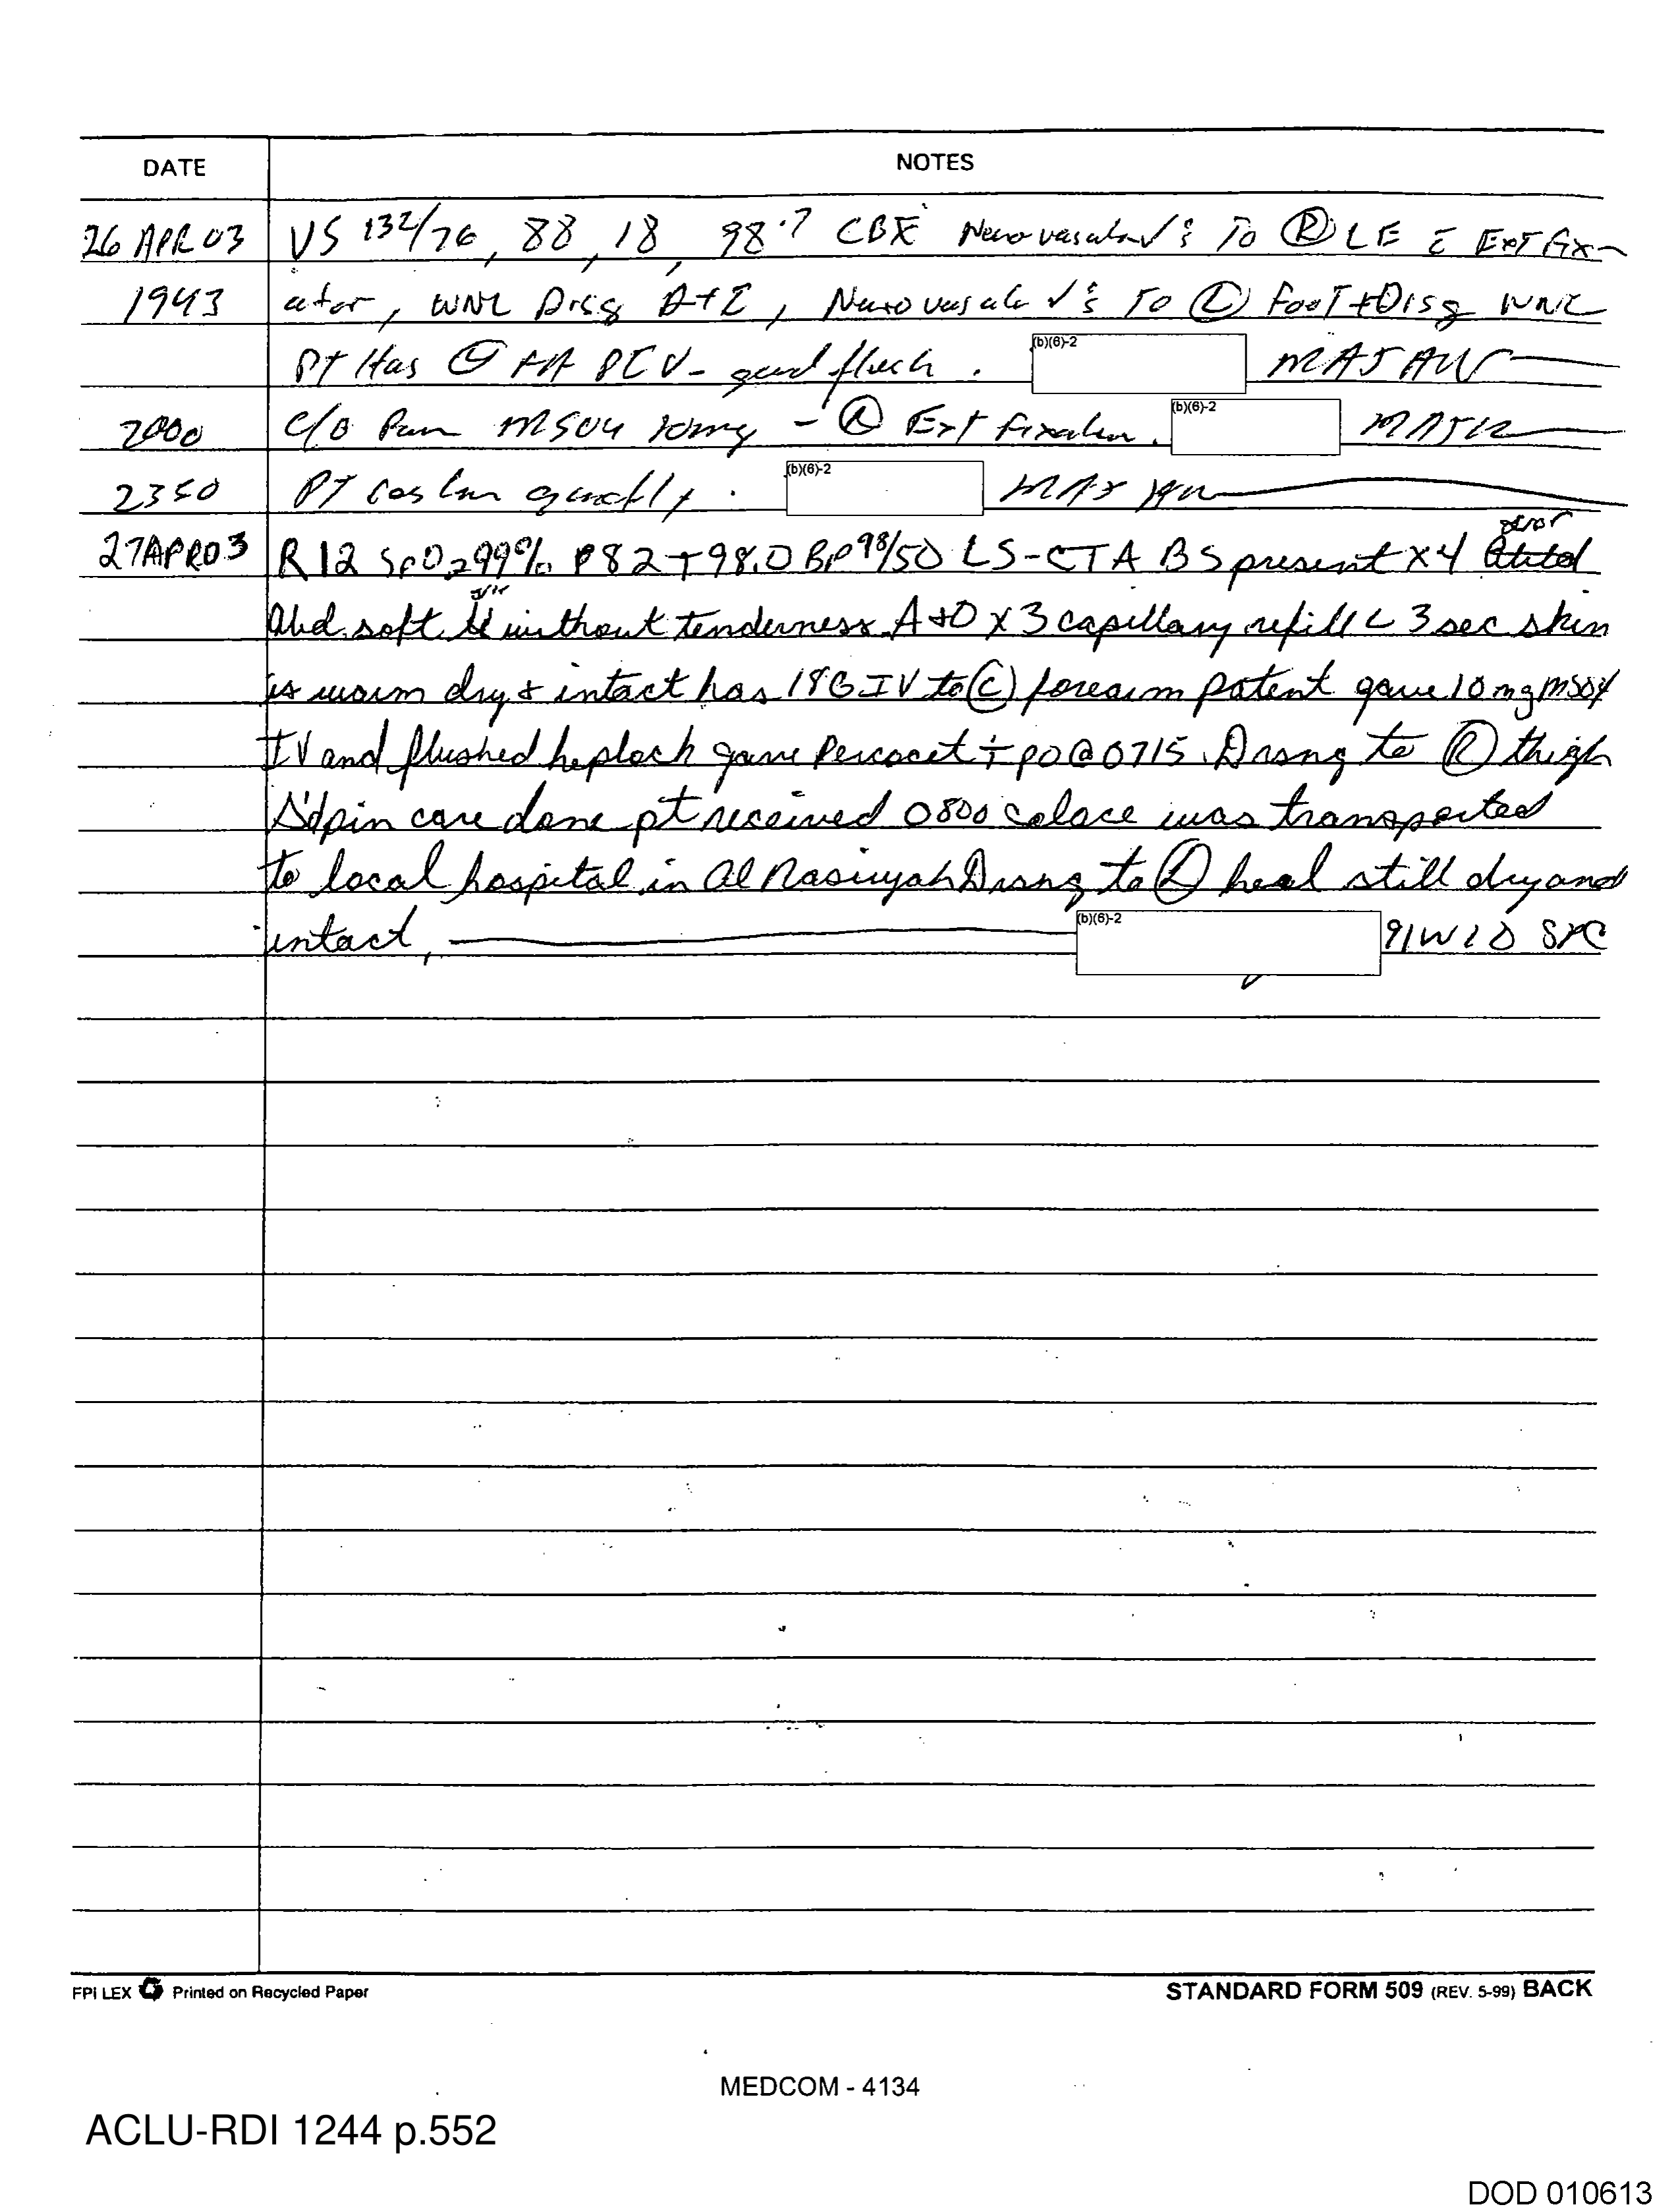 DATE NOTES
26 APR 03 VS 132/76, 88, 18, 98.7 CBE Neurovascular √'s To Ⓡ LE c̄ Ext Fix-
1943 ator, WNL Drsg D+I, Neurovascular √'s To Ⓛ Foot + Drsg WNL
Pt Has FA PIV - good flush. (b)(6)-2 MAJ AN
2000 c/o Pain MSO4 10mg - Ⓡ Ext Fixator. (b)(6)-2 MAJ
2350 PT quietly. (b)(6)-2 MAJ AN
27APR03 R12 SpO2 99% P82 T98.0 BP 98/50 LS-CTA BS present x4 error
Abd. soft. without tenderness A+O x 3 capillary refill < 3 sec skin
is warm dry + intact has 18G IV to Ⓛ forearm patent gave 10mg MSO4
IV and flushed heplock gave Percocet † po @ 0715. Drsng to Ⓡ thigh
S'd pin care done pt received 0800 colace was transported
to local hospital in Al Nasiriyah Drsng to Ⓛ heal still dry and
intact, (b)(6)-2 91W10 SPC
FPI LEX Printed on Recycled Paper STANDARD FORM 509 (REV. 5-99) BACK
MEDCOM - 4134
ACLU-RDI 1244 p.552
DOD 010613